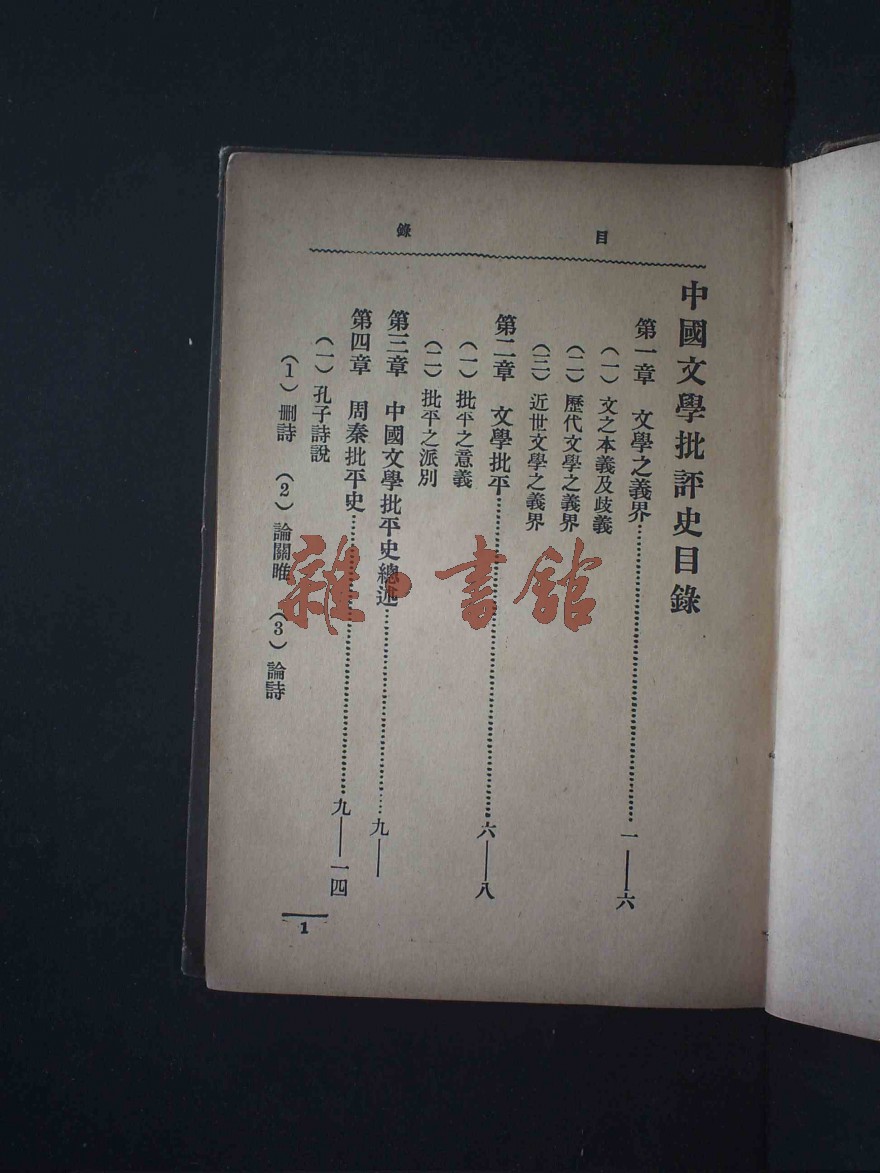 目錄
中國文學批評史目錄
第一章 文學之義界……一——六
（一）文之本義及歧義
（二）歷代文學之義界
（三）近世文學之義界
第二章 文學批平……六——八
（一）批平之意義
（二）批平之派別
第三章 中國文學批平史總述……九——
第四章 周秦批平史……九——一四
（一）孔子詩說
（1）刪詩 （2）論關雎 （3）論詩
1
雜·書館